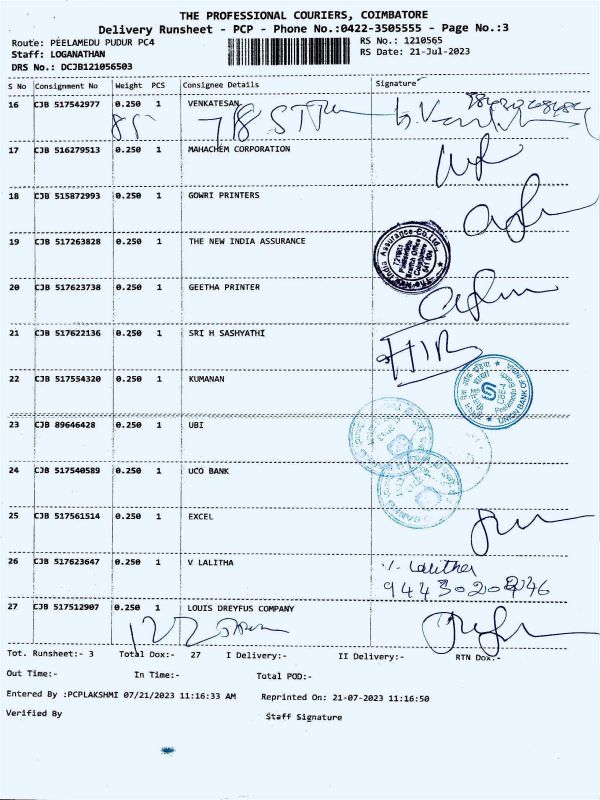 THE PROFESSIONAL COURIERS, COIMBATORE
Delivery Runsheet - PCP - Phone No.:0422-3505555 - Page No.:3
Route: PEELAMEDU PUDUR PC4 RS No.: 1210565
Staff: LOGANATHAN RS Date: 21-Jul-2023
DRS No.: DCJB121056503
S No Consignment No Weight PCS Consignee Details Signature
16 CJB 517542977 0.250 1 VENKATESAN
17 CJB 516279513 0.250 1 MAHACHEM CORPORATION
18 CJB 515872993 0.250 1 GOWRI PRINTERS
19 CJB 517263828 0.250 1 THE NEW INDIA ASSURANCE
20 CJB 517623738 0.250 1 GEETHA PRINTER
21 CJB 517622136 0.250 1 SRI H SASHYATHI
22 CJB 517554320 0.250 1 KUMANAN
UNION BANK OF INDIA
23 CJB 89646428 0.250 1 UBI
24 CJB 517540589 0.250 1 UCO BANK
25 CJB 517561514 0.250 1 EXCEL
26 CJB 517623647 0.250 1 V LALITHA
V. Lalitha
27 CJB 517512907 0.250 1 LOUIS DREYFUS COMPANY
Tot. Runsheet:- 3 Total Dox:- 27 I Delivery:- II Delivery:- RTN Dox:-
Out Time:- In Time:- Total POD:-
Entered By :PCPLAKSHMI 07/21/2023 11:16:33 AM Reprinted On: 21-07-2023 11:16:50
Verified By Staff Signature